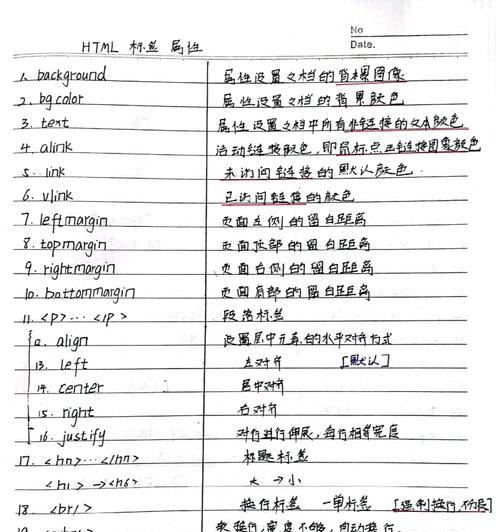 No
Date.
HTML 标签 属性
1. background 属性设置文档的背景图像
2. bgcolor 属性设置文档的背景颜色
3. text 属性设置文档中所有非链接的文本颜色
4. alink 活动链接颜色，即鼠标点击链接图案颜色
5. link 未访问链接的默认颜色
6. vlink 已访问链接的颜色
7. leftmargin 页面左侧的留白距离
8. topmargin 页面顶部的留白距离
9. rightmargin 页面右侧的留白距离
10. bottommargin 页面底部的留白距离
11. <p>...</p> 段落标签
a. align 设置层中元素的水平对齐方式
13. left 左对齐 [默认]
14. center 居中对齐
15. right 右对齐
16. justify 对行进行伸展，每行相等宽度
17. <hn>...</hn> 标题标签
<h1> → <h6> 大 → 小
18. <br/> 换行标签 一单标签 [强制换行,